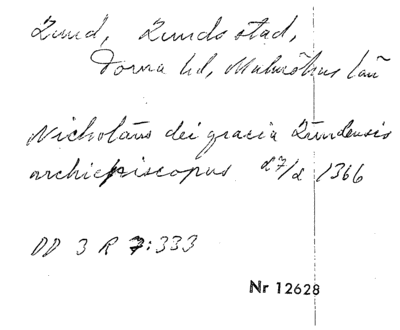 Lund, Lunds stad,
Torna hd, Malmöhus län
Nicholaus dei gracia Lundensis
archiepiscopus 27/2 1366
DD 3 R 7:333
Nr 12628